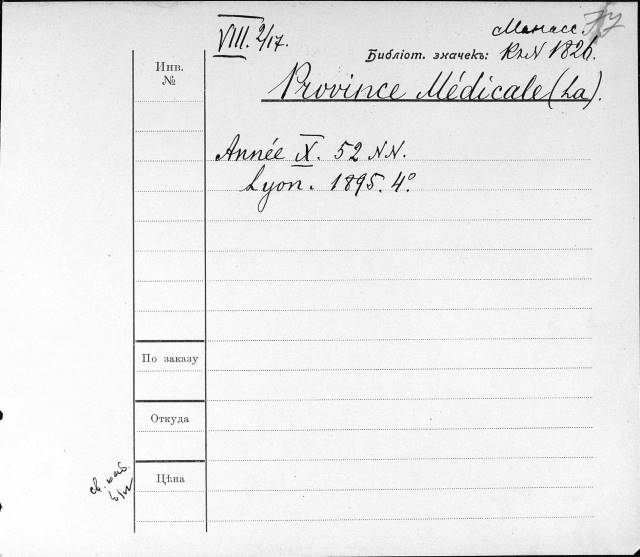 VIII. 2/17.
Манасс.
Библіот. значекъ: КzN 1826.
Инв. №
Province Médicale (La).
Année IX. 52 NN.
Lyon. 1895. 4°
По заказу
Откуда
Цѣна